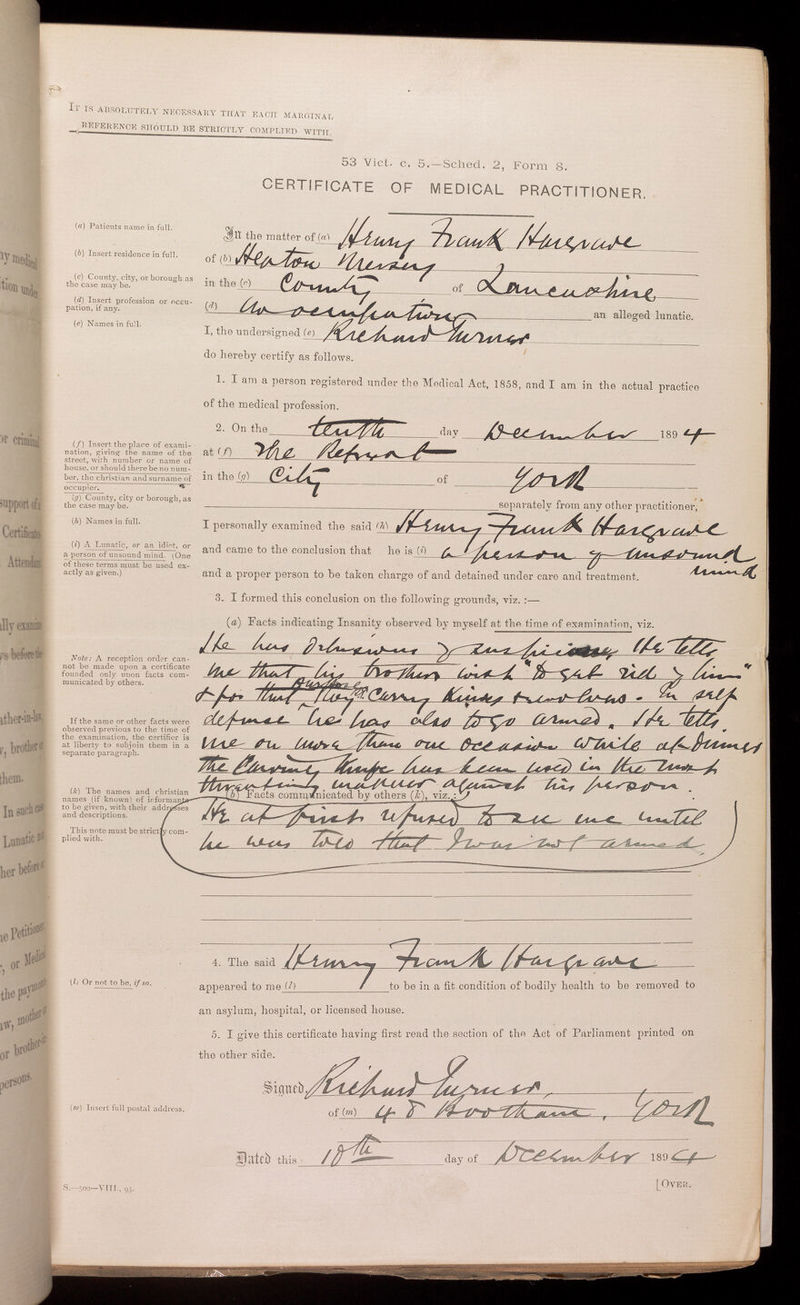 IT IS ABSOLUTELY NECESSARY THAT EACH MARGINAL
REFERENCE SHOULD BE STRICTLY COMPLIED WITH.
53 Vict. c. 5.—Sched. 2, Form 8.
CERTIFICATE OF MEDICAL PRACTITIONER.
(a) Patients name in full.
(b) Insert residence in full.
(c) County, city, or borough as
the case may be.
(d) Insert profession or occu-
pation, if any.
(e) Names in full.
In the matter of (a) Henry Frank Hargrave
of (b) Heaton Mersey
in the (c) County of Lancashire
(d) No occupation an alleged lunatic.
I, the undersigned (e) Richard Turner
do hereby certify as follows.
1. I am a person registered under the Medical Act, 1858, and I am in the actual practice
of the medical profession.
(f) Insert the place of exami-
nation, giving the name of the
street, with number or name of
house, or should there be no num-
ber, the christian and surname of
occupier.
(g) County, city or borough, as
the case may be.
(h) Names in full.
(i) A Lunatic, or an idiot, or
a person of unsound mind. (One
of these terms must be used ex-
actly as given.)
2. On the tenth day December 1894
at (f) The Retreat
in the (g) City of York
separately from any other practitioner,
I personally examined the said (h) Henry Frank Hargrave
and came to the conclusion that he is (i) a person of unsound
mind
and a proper person to be taken charge of and detained under care and treatment.
3. I formed this conclusion on the following grounds, viz. :—
(a) Facts indicating Insanity observed by myself at the time of examination, viz.
Note: A reception order can-
not be made upon a certificate
founded only upon facts com-
municated by others.
If the same or other facts were
observed previous to the time of
the examination, the certifier is
at liberty to subjoin them in a
separate paragraph.
(k) The names and christian
names (if known) of informants
to be given, with their addresses
and descriptions.
This note must be strictly com-
plied with.
He has Delusions of He tells
me that his brothers wish "to get rid of him"
& for that purpose they carry Knives revolvers. In self
defense he has also to go armed. He tells
me on more than one occasion while at dinner
the Carving Knife has been used in the most
threatening manner against his person.
(b) Facts communicated by others (k), viz. :—
He at first refused to see me until
he was told that I was not armed
4. The said Henry Frank Hargrave
appeared to me (l) to be in a fit condition of bodily health to be removed to
an asylum, hospital, or licensed house.
(l) Or not to be, if so.
5. I give this certificate having first read the section of the Act of Parliament printed on
the other side.
Signed, Richard Turner,
(m) Insert full postal address.
of (m) Bootham, York
Dated this 10th day of December 1894
S.—500—VIII., 93.
[OVER.